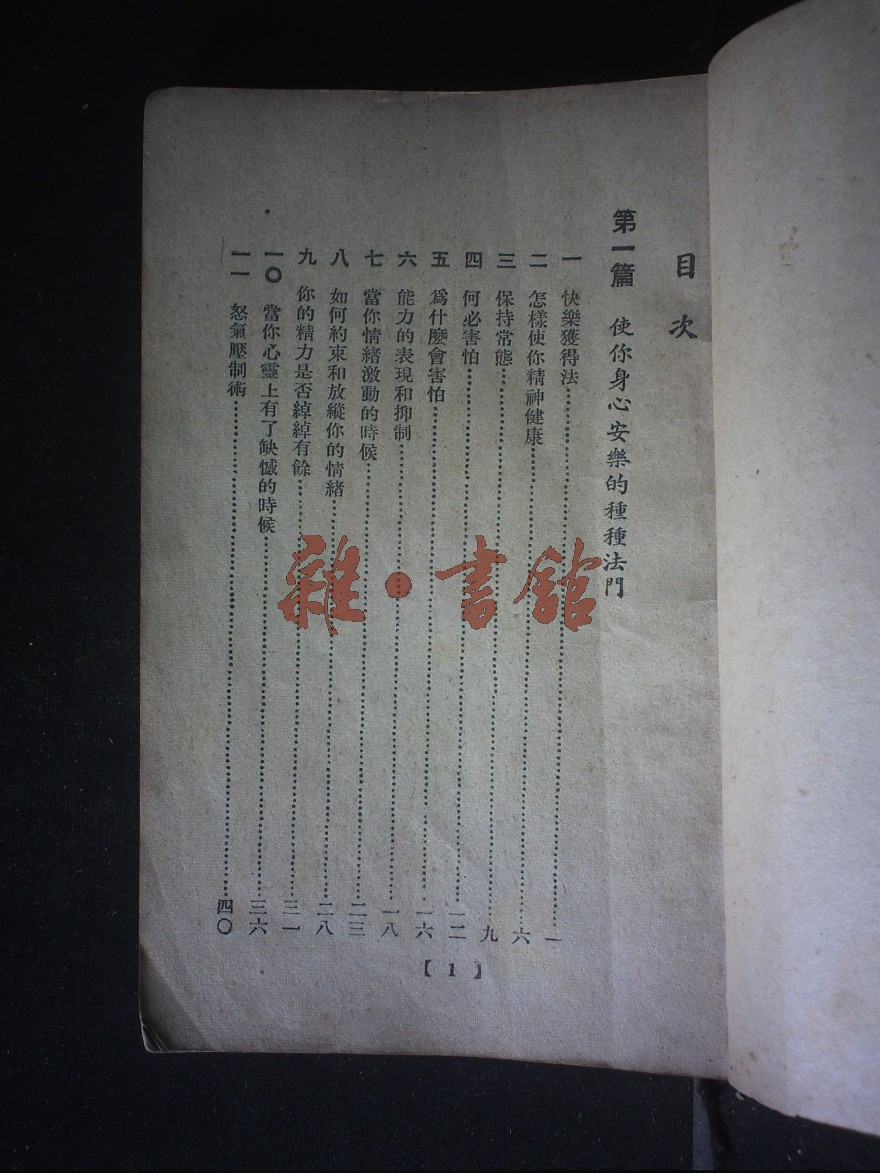 目次
第一篇 使你身心安樂的種種法門
一 快樂獲得法…………一
二 怎樣使你精神健康…………六
三 保持常態…………九
四 何必害怕…………一二
五 爲什麽會害怕…………一六
六 能力的表現和抑制…………一八
七 當你情緒激動的時候…………二三
八 如何約束和放縱你的情緒…………二八
九 你的精力是否綽綽有餘…………三一
一〇 當你心靈上有了缺憾的時候…………三六
一一 怒氣壓制術…………四〇
【1】
雜·書館